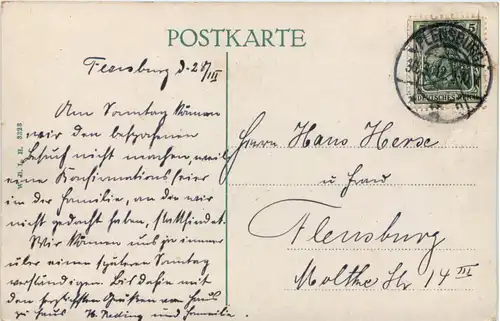 POSTKARTE
Flensburg d. 28/III
Am Sonntag können
wir den besprochenen
Besuch nicht machen, weil
eine Konfirmationsfeier
in der Familie, an die wir
nicht gedacht haben, stattfindet.
Wir können uns ja immer
über einen späteren Sonntag
verständigen. Bis dahin mit
den herzlichsten Grüßen von Haus
zu Haus und Familie.
W. H. L. H. 3323
FLENSBURG
5
DEUTSCHES REICH
Herrn Hans Herse
u Frau
Flensburg
Moltke Str 14 III